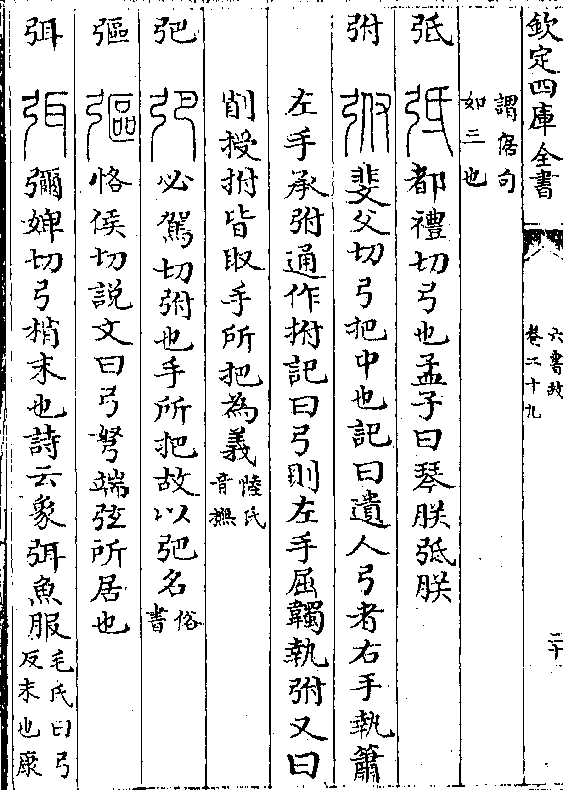 欽定四庫全書
六書故
卷二十九
二十
謂倨句
如三也
弤 弤都禮切弓也孟子曰琴朕弤朕
弣 弣斐父切弓把中也記曰遺人弓者右手執簫
左手承弣通作拊記曰弓則左手屈韣執弣又曰
削授拊皆取手所把為義陸氏
音撫
弝 弝必駕切弣也手所把故以弝名俗
書
彄 彄恪侯切說文曰弓弩端弦所居也
弭 弭彌婢切弓梢末也詩云象弭魚服毛氏曰弓
反末也康